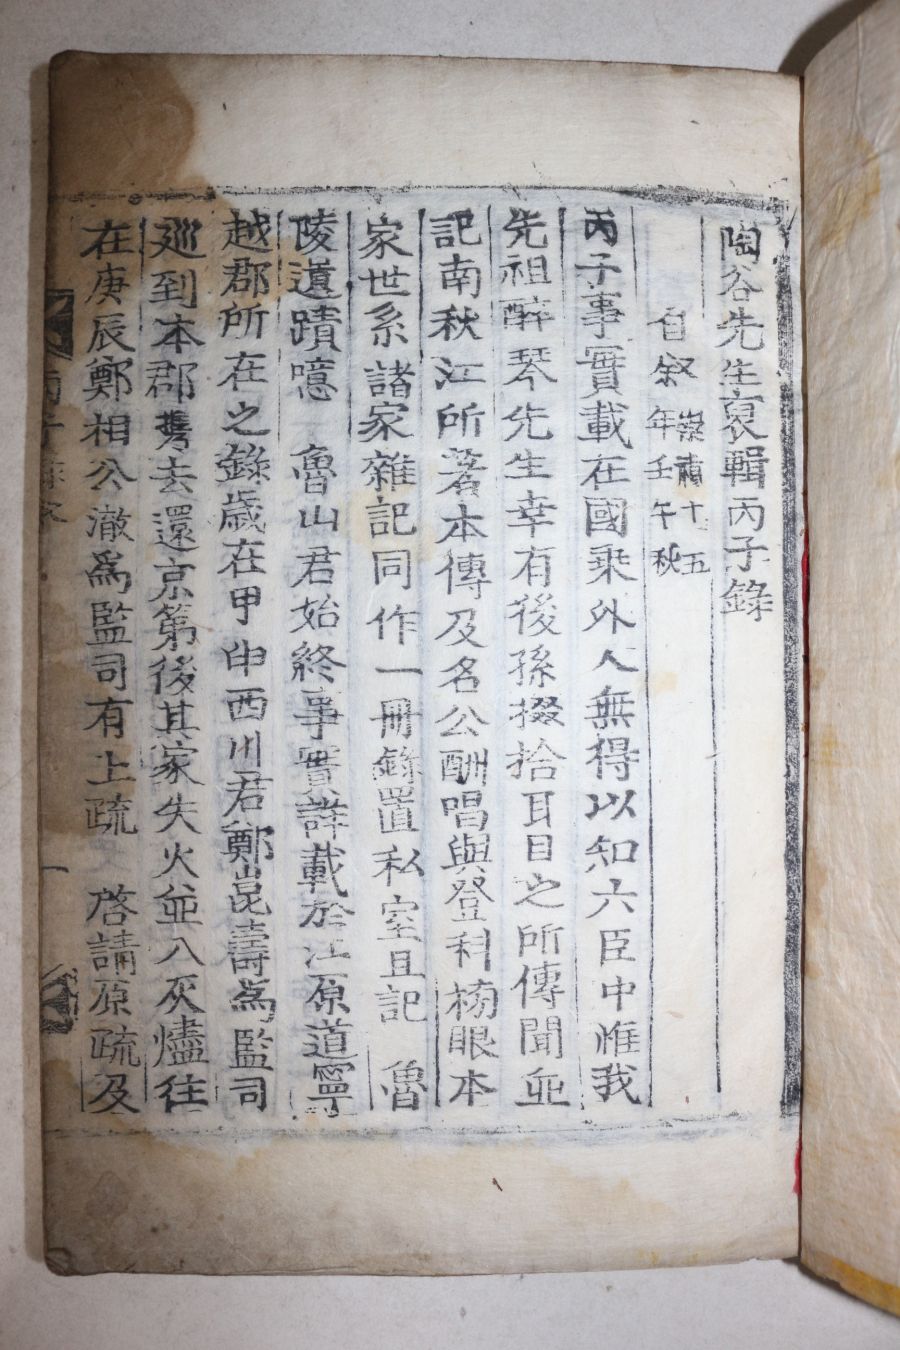 陶谷先生裒輯丙子錄
自叙 崇禎十五
年壬午秋
丙子事實載在國乘外人無得以知六臣中惟我
先祖醉琴先生幸有後孫掇拾耳目之所傳聞並
記南秋江所著本傳及名公酬唱與登科榜眼本
家世系諸家雜記同作一冊錄置私室且記 魯
陵遺蹟噫 魯山君始終事實詳載於江原道寧
越郡所在之錄歲在甲申西川君鄭崑壽爲監司
巡到本郡携去還京第後其家失火並入灰燼往
在庚辰鄭相公澈爲監司有上疏 啓請原疏及